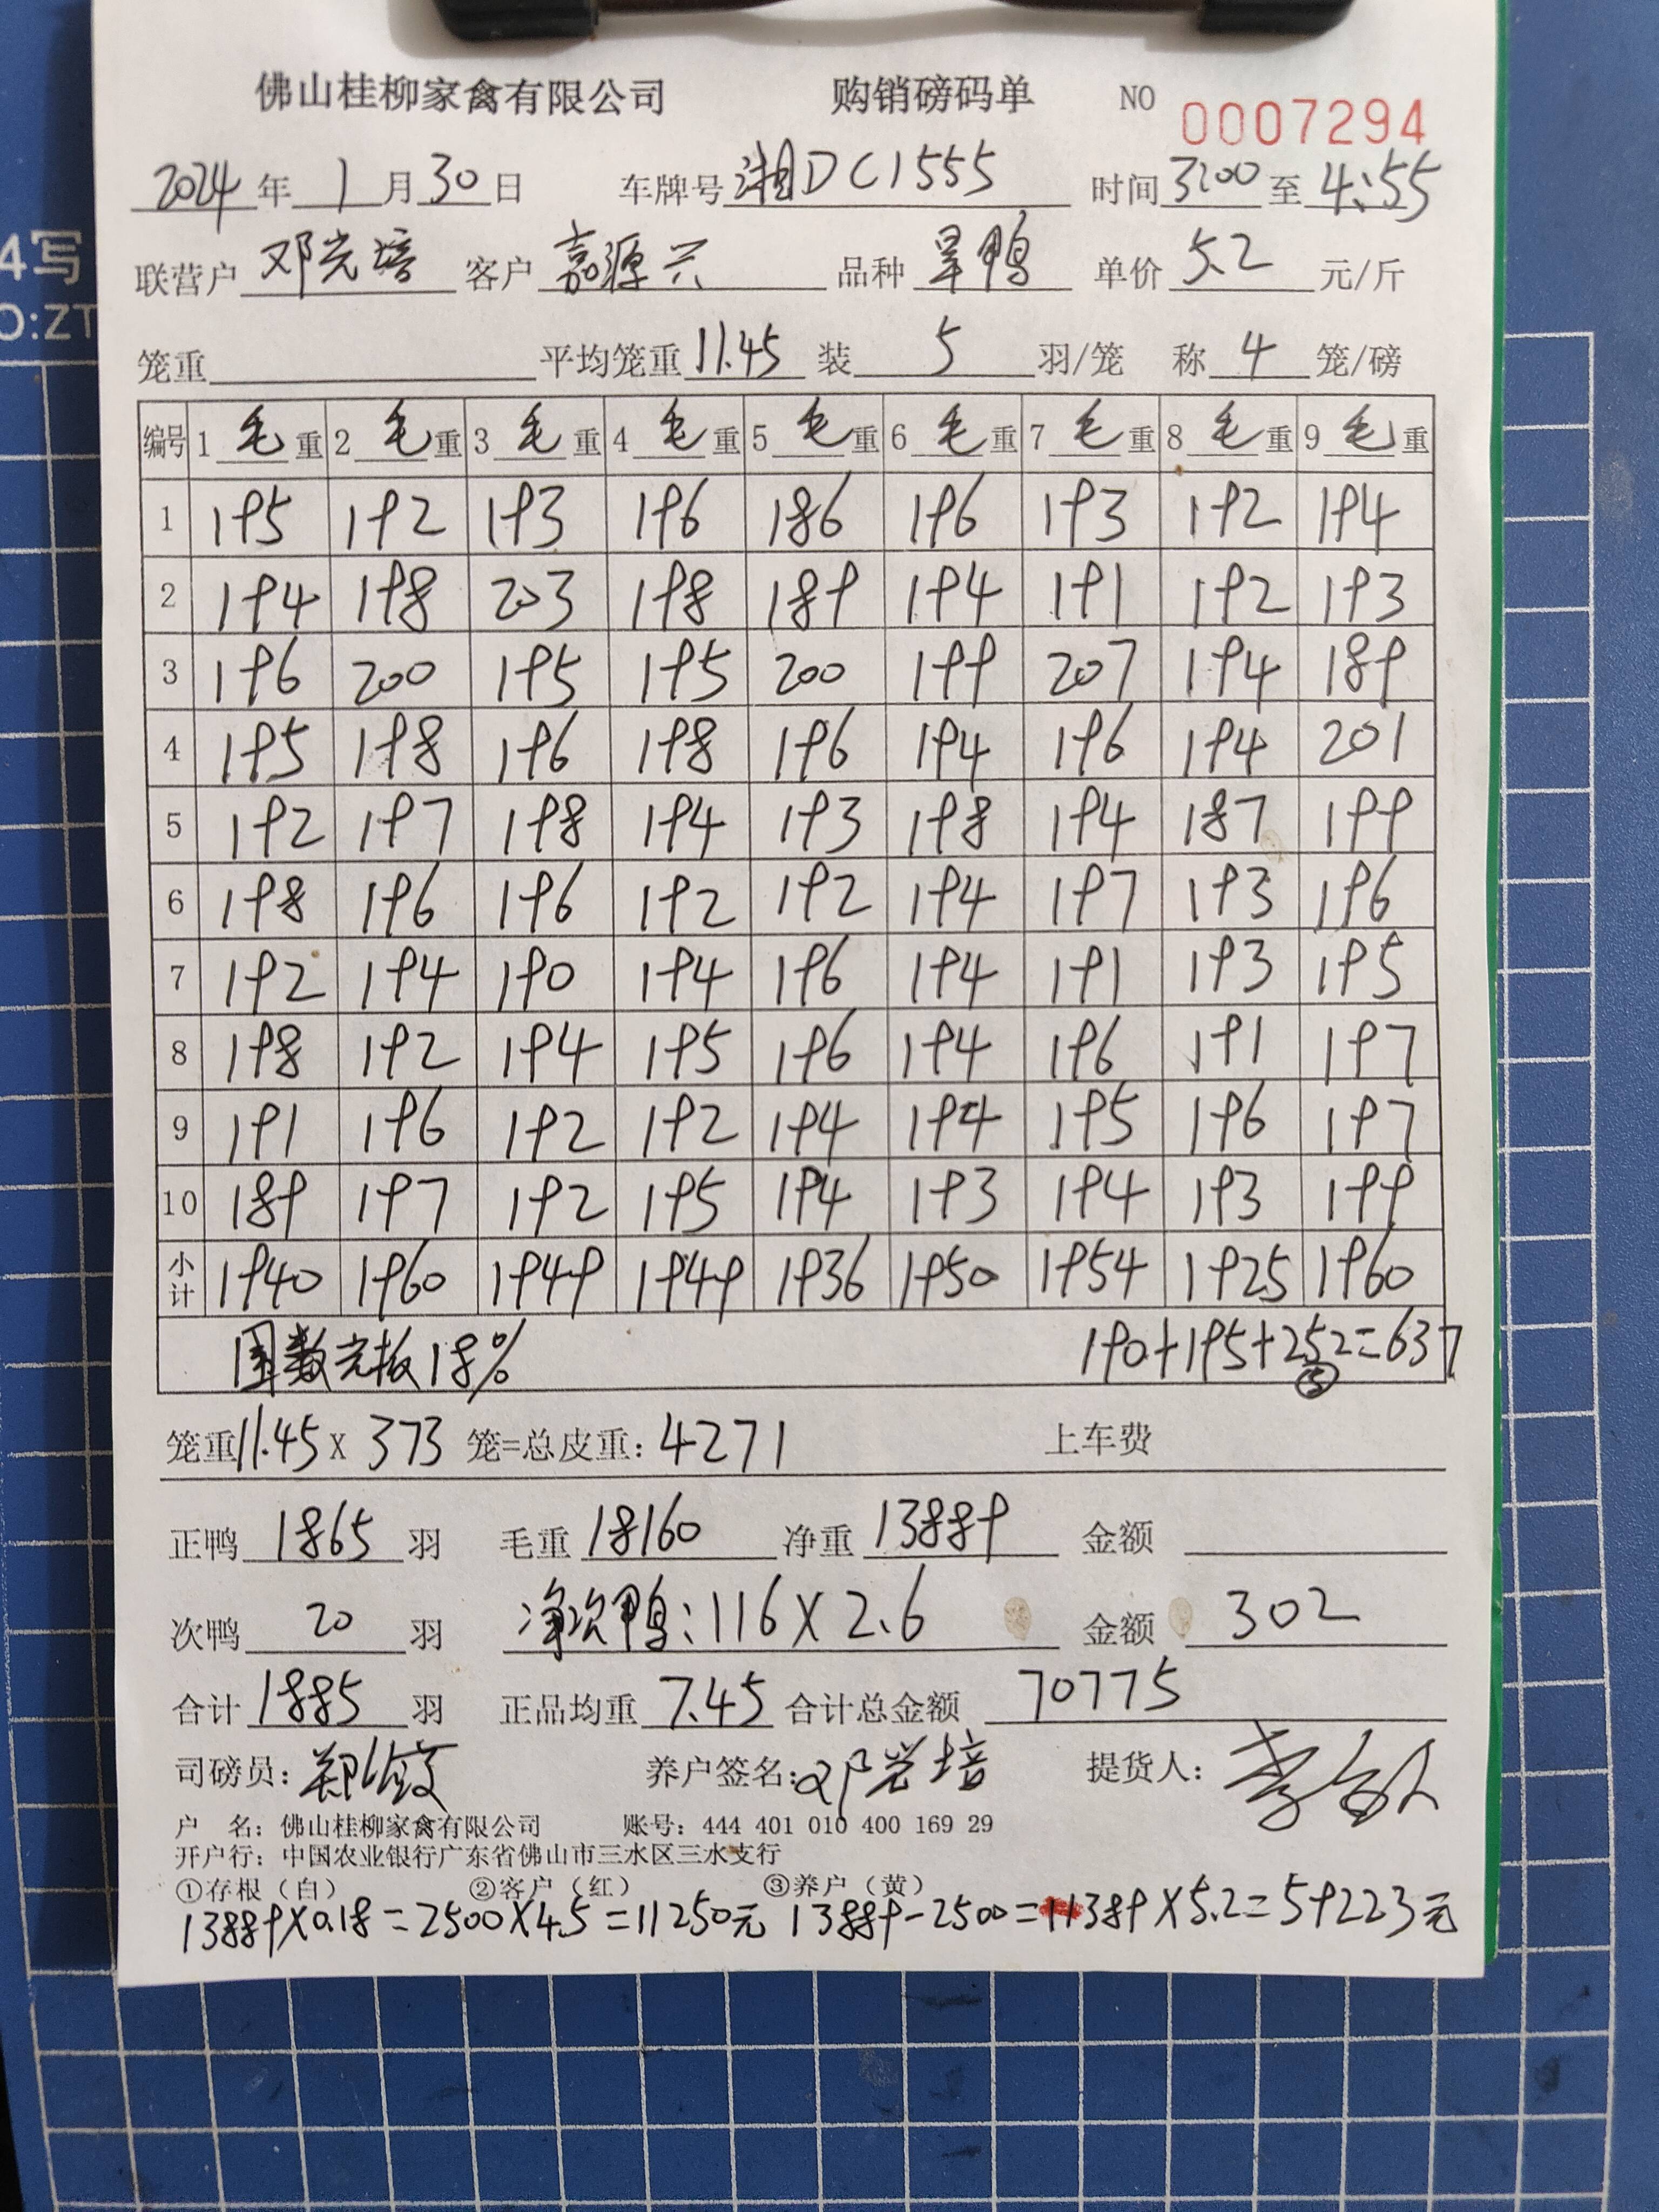 4写
O:ZT
佛山桂柳家禽有限公司 购销磅码单 NO 0007294
2024年1月30日 车牌号湘DC1555 时间3:00至4:55
联营户邓光培 客户嘉源兴 品种旱鸭 单价5.2元/斤
笼重 平均笼重11.45 装5羽/笼 称4笼/磅
编号 1毛重 2毛重 3毛重 4毛重 5毛重 6毛重 7毛重 8毛重 9毛重
1 195 192 193 196 186 196 193 192 194
2 194 198 203 198 189 194 191 192 193
3 196 200 195 195 200 199 207 194 189
4 195 198 196 198 196 194 196 194 201
5 192 197 198 194 193 198 194 187 199
6 198 196 196 192 192 194 197 193 196
7 192 194 190 194 196 194 191 193 195
8 198 192 194 195 196 194 196 191 197
9 191 196 192 192 194 194 195 196 197
10 189 197 192 195 194 193 194 193 199
小计 1940 1960 1949 1949 1936 1950 1954 1925 1960
18% 190+195+252=637
⑤
笼重11.45X373笼=总皮重:4271 上车费
正鸭1865羽 毛重18160 净重13889 金额
次鸭20羽 净次鸭:116X2.6 金额302
合计1885羽 正品均重7.45 合计总金额70775
司磅员: 养户签名:邓光培 提货人:
户 名:佛山桂柳家禽有限公司 账号:444 401 010 400 169 29
开户行:中国农业银行广东省佛山市三水区三水支行
①存根(白) ②客户(红) ③养户(黄)
13889X0.18=2500X4.5=11250元 13889-2500=11389X5.2=59223元